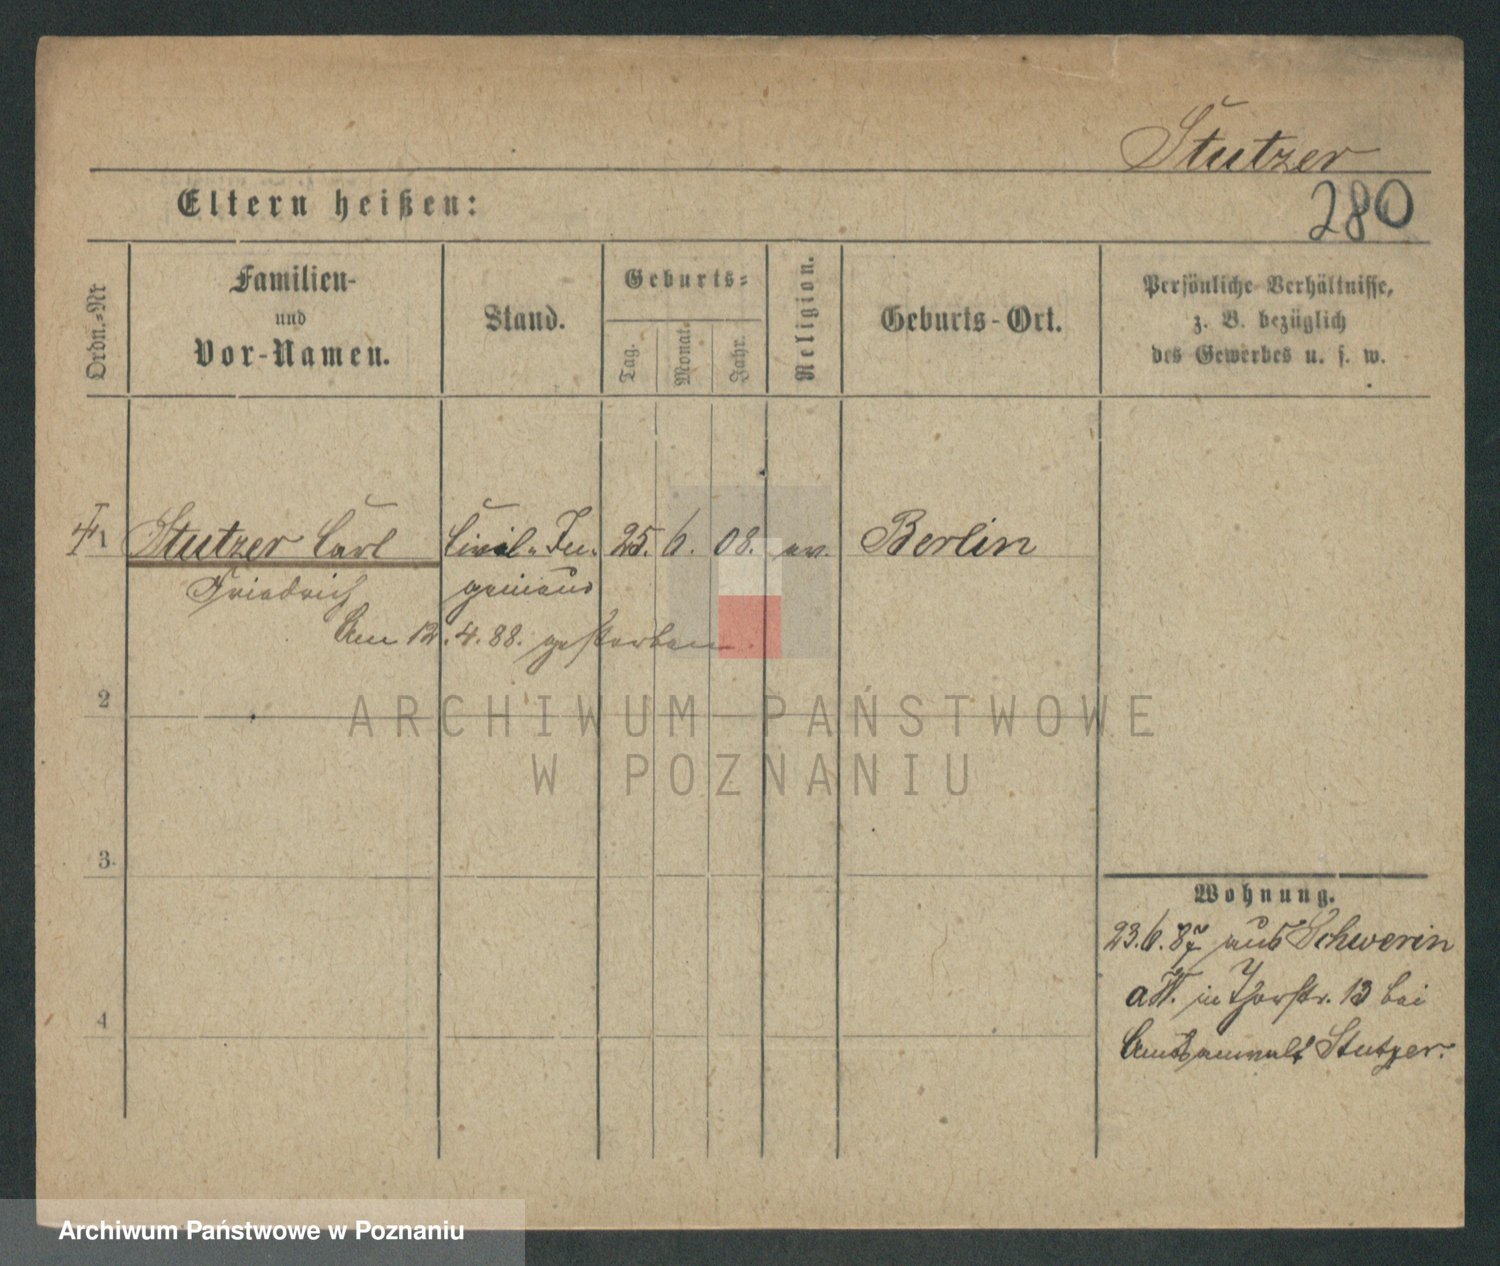 Stutzer
Eltern heißen:
280
Ordn.-Nr
Familien-
und
Vor-Namen.
Stand.
Geburts-
Tag.
Monat.
Jahr.
Religion.
Geburts-Ort.
Persönliche Verhältnisse,
z. B. bezüglich
des Gewerbes u. s. w.
1 Stutzer Carl Civil-In- 25. 6. 08. ev. Berlin
Friedrich genieur
Am 12.4.88. gestorben.
2
ARCHIWUM PAŃSTWOWE
W POZNANIU
3.
Wohnung.
23.6.87 aus Schwerin
a/W. in Thorstr. 13 bei
4
Amtsanwalt Stutzer.
Archiwum Państwowe w Poznaniu